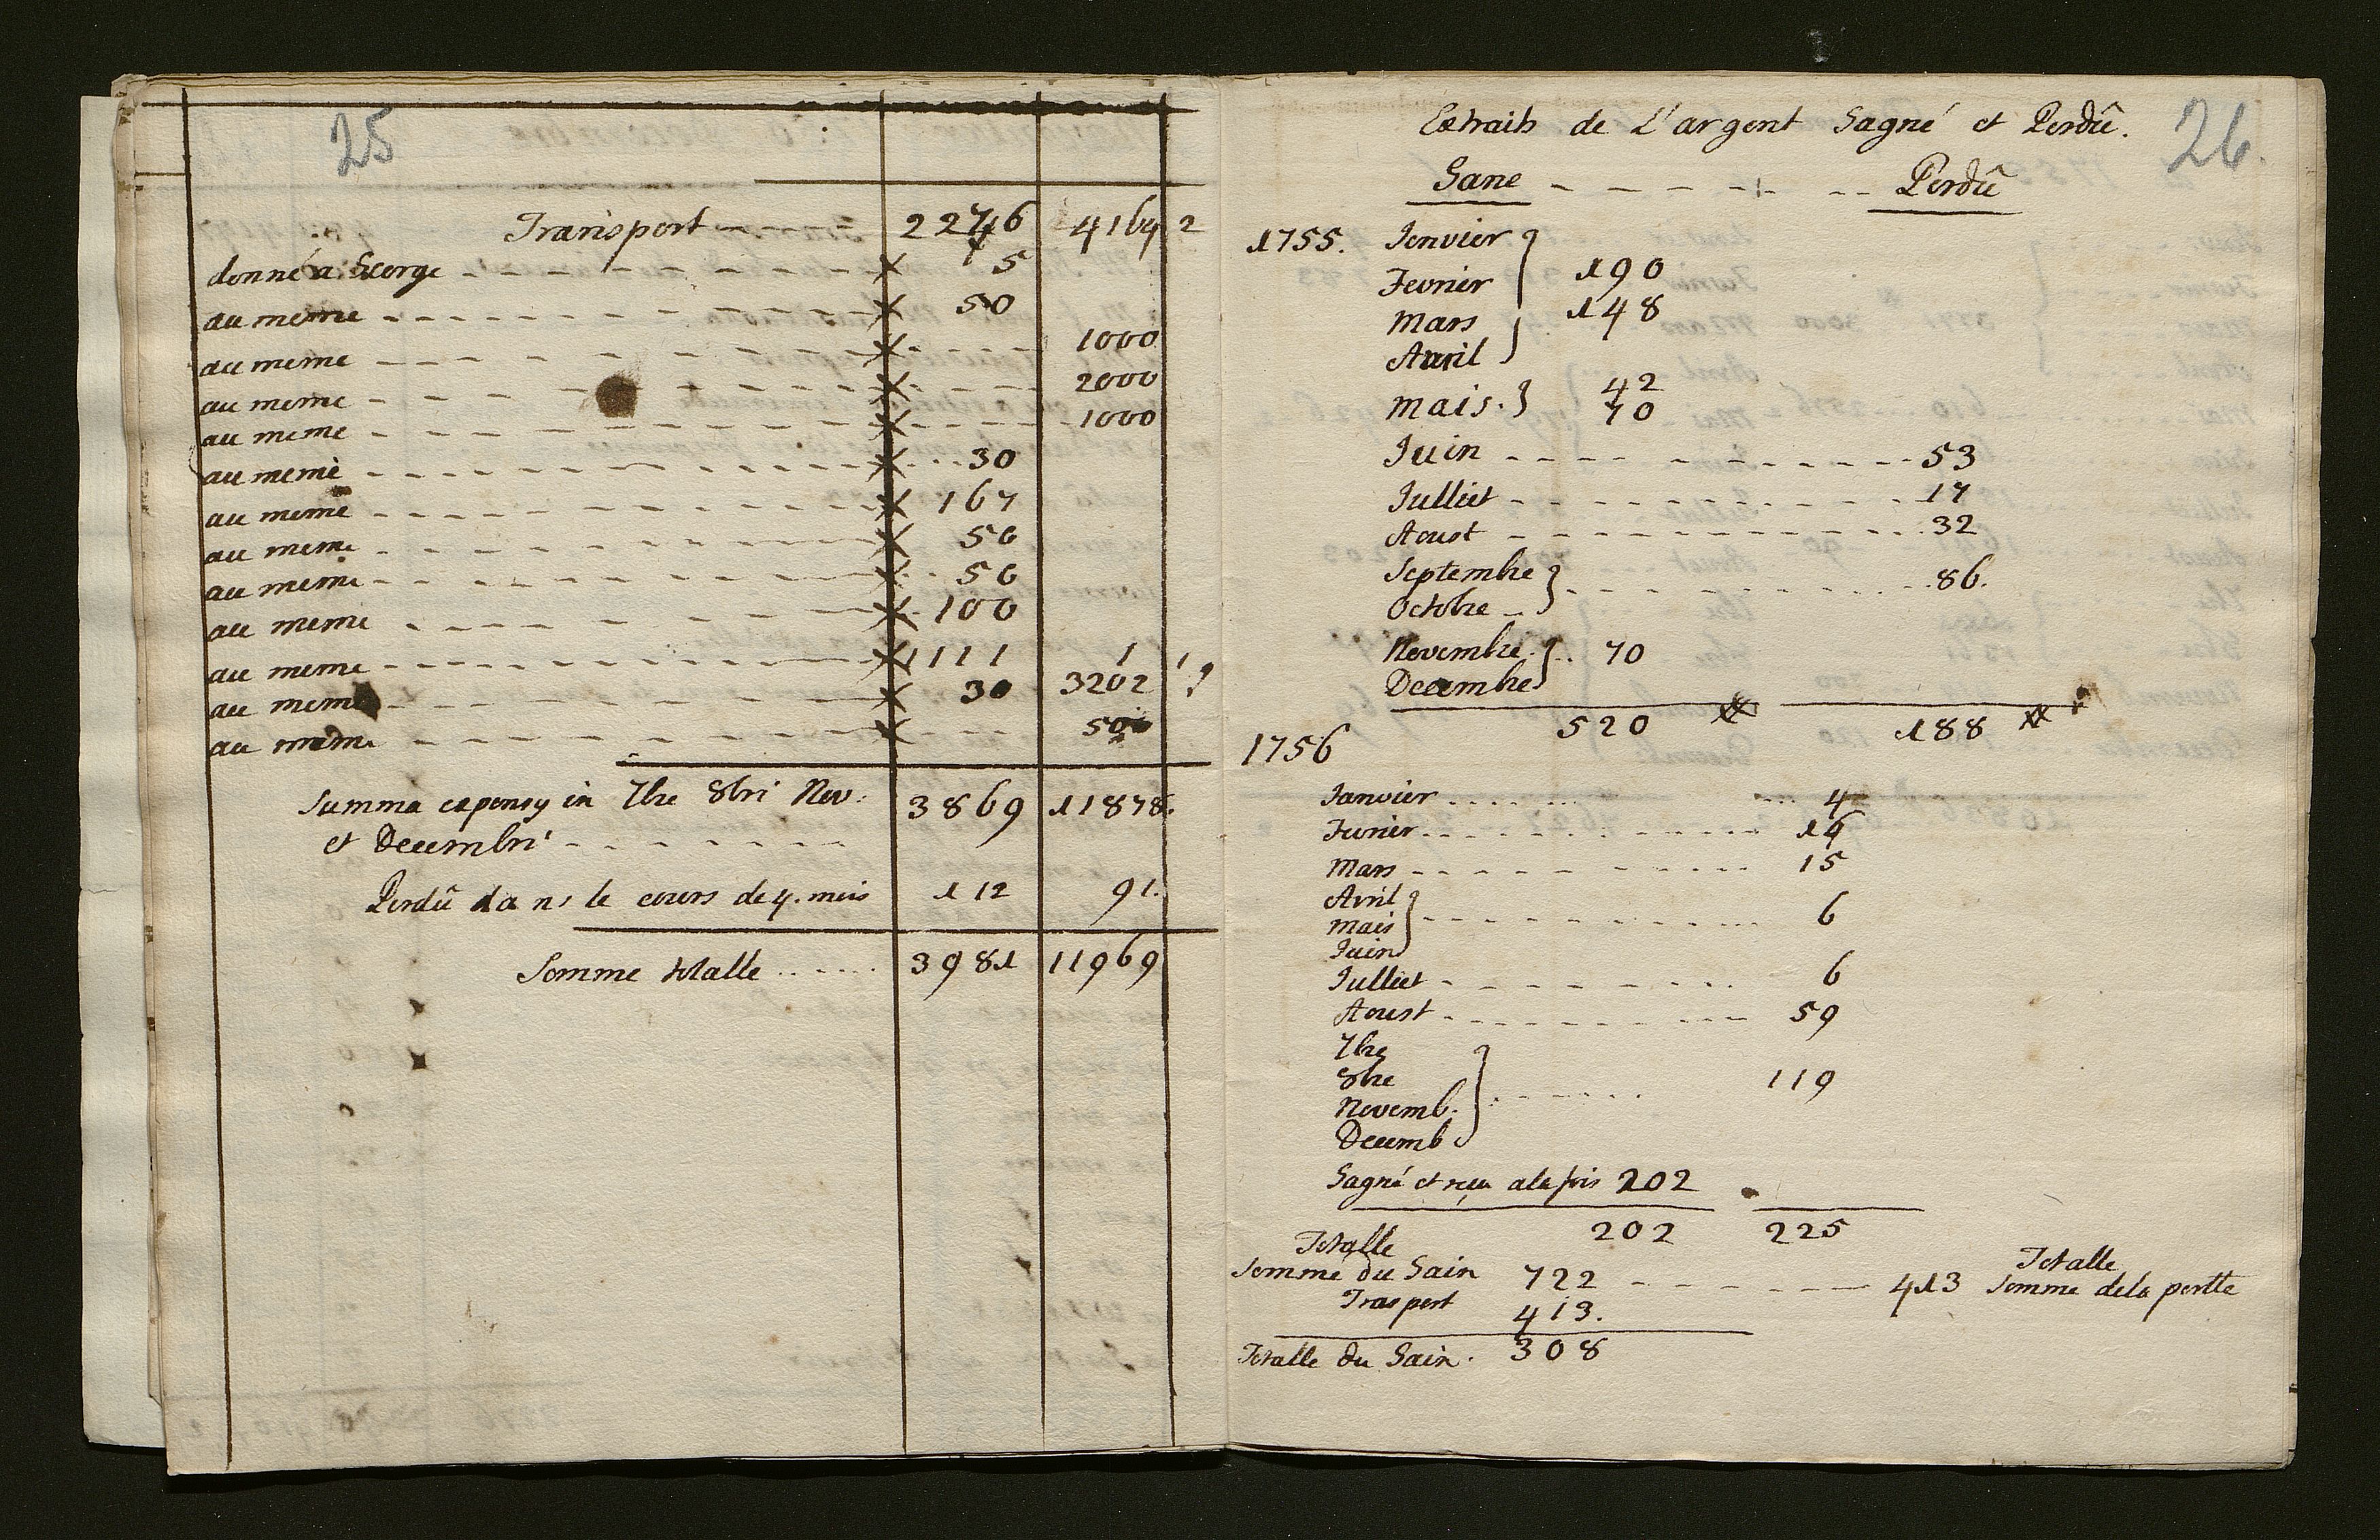 25
Transport - - - - - 2246 4164 2
donné a George - - - - - x 5
au meme - - - - - x 50
au meme - - - - - x - - - 1000
au meme - - - - - x - - - 2000
au meme - - - - - x - - - 1000
au meme - - - - - x 30
au meme - - - - - x 167
au meme - - - - - x 50
au meme - - - - - x 50
au meme - - - - - x 100
au meme - - - - - x 1111 1 1
au meme - - - - - x 30 3202
au meme - - - - - x - - - 500
Summa expensy in 7bre 8bri Nov: 3869 11878.
et Decembri - - - - -
Perdû dans le cours de 4. mois 112 91.
Somme totalle ..... 3981 11969
26.
Extraits de L'argent Gagné et Perdû.
Gane - - - - - Perdû
1755. Jenvier
Fevrier 190
Mars 148
Avril
Mais. 42
70
Juin - - - - - 53
Julliet - - - - - 17
Aoust - - - - - 32
Septembre - - - - - 86.
Octobre
Novembre .. 70
Decembre
520 188
1756
Janvier .... 4
Fevrier - - - - - 16
Mars - - - - - 15
Avril
Mais - - - - - 6
Juin
Julliet - - - - - 6
Aoust - - - - - 59
7bre
8bre 119
Novemb.
Decemb
Gagné et reçu a la fois 202
202 225
Totalle
Somme du Gain 722 - - - - - 413 Totalle Somme dela pertte
Trasport 413.
Totalle du Gain. 308